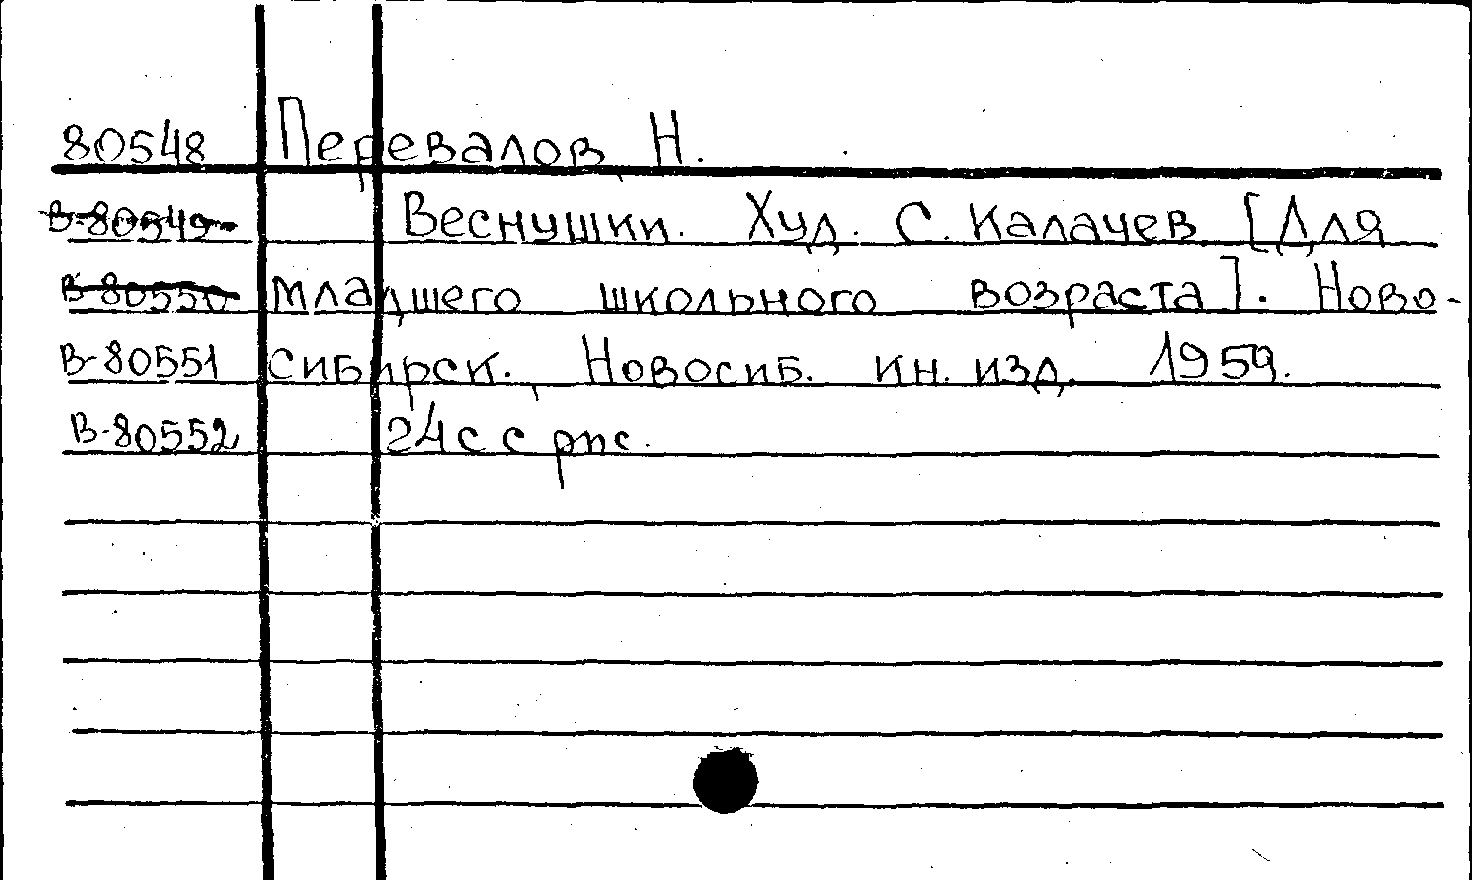 80548 Перевалов, Н.
В-80549 Веснушки. Худ. С. Калачев. [Для
В-80550 младшего школьного возраста]. Ново-
В-80551 сибирск., Новосиб. кн. изд, 1959.
В-80552 24 с с рис.